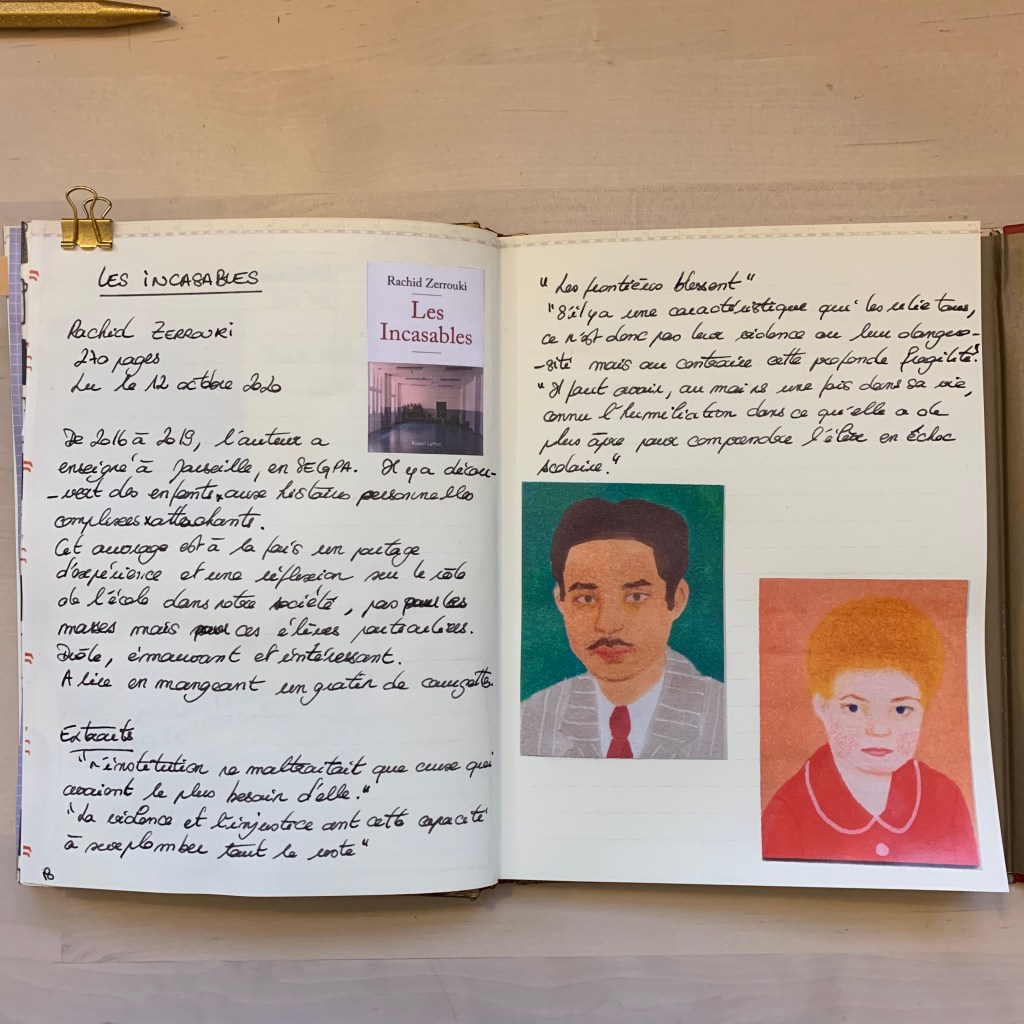 LES INCASABLES
Rachid ZERROUKI
270 pages
Lu le 12 octobre 2020
Rachid Zerrouki
Les
Incasables
Robert Laffont
De 2016 à 2019, l'auteur a
enseigné à Marseille, en SEGPA. Il y a décou-
-vert des enfants aux histoires personnelles
complexes attachants.
Cet ouvrage est à la fois un partage
d'expérience et une réflexion sur le rôle
de l'école dans notre société, pas pour les
masses mais pour ces élèves particuliers.
Drôle, émouvant et intéressant.
A lire en mangeant un gratin de courgettes.
Extraits
"L'institution ne maltraitait que ceux qui
avaient le plus besoin d'elle."
"La violence et l'injustice ont cette capacité
à surplomber tout le reste"
"Les frontières blessent"
"S'il y a une caractéristique qui les relie tous,
ce n'est donc pas leur violence ou leur dangero-
-sité mais au contraire cette profonde fragilité."
"Il faut avoir, au moins une fois dans sa vie,
connu l'humiliation dans ce qu'elle a de
plus âpre pour comprendre l'élève en échec
scolaire."